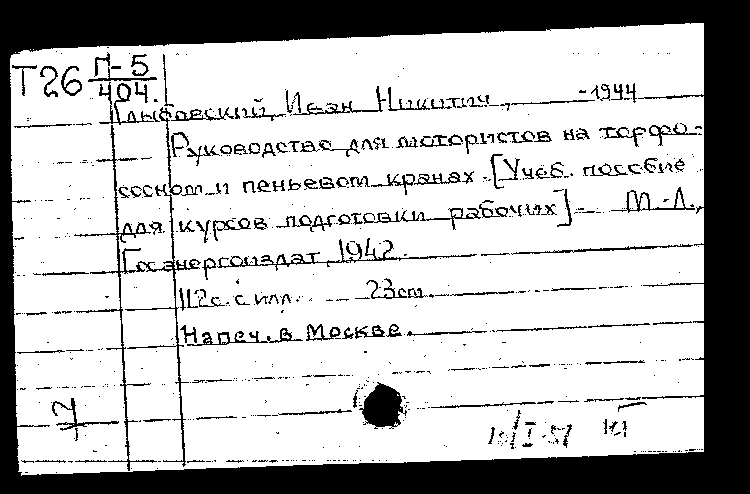 Т26 П-5
404.
Глыбовский, Иван Никитич, -1944
Руководство для мотористов на торфо-
сосном и пеньевом кранах. [Учеб. пособие
для курсов подготовки рабочих]- М.-Л.,
Госэнергоиздат, 1942.
112с. с илл. 23cm.
Напеч. в Москве.
7
10/I-51